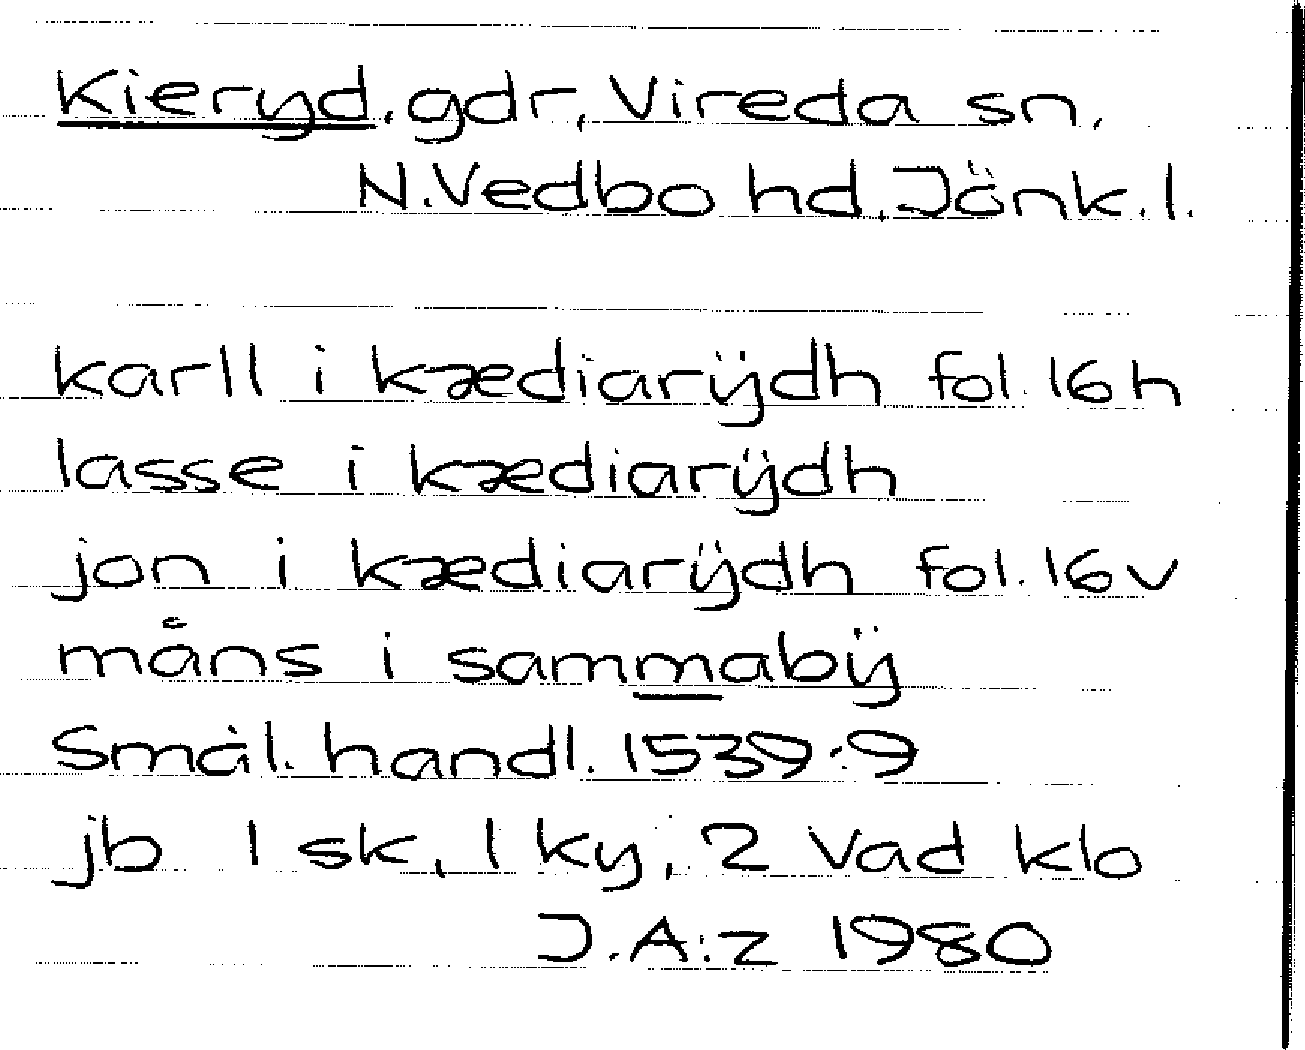 Kieryd, gdr, Vireda sn,
N.Vedbo hd, Jönk.l.
karll i kædiarÿdh fol. 16 h
lasse i kædiarÿdh
jon i kædiarÿdh fol. 16 v
måns i sammabÿ
Smål. handl. 1539:9
jb 1 sk, 1 ky, 2 Vad klo
J.A:z 1980